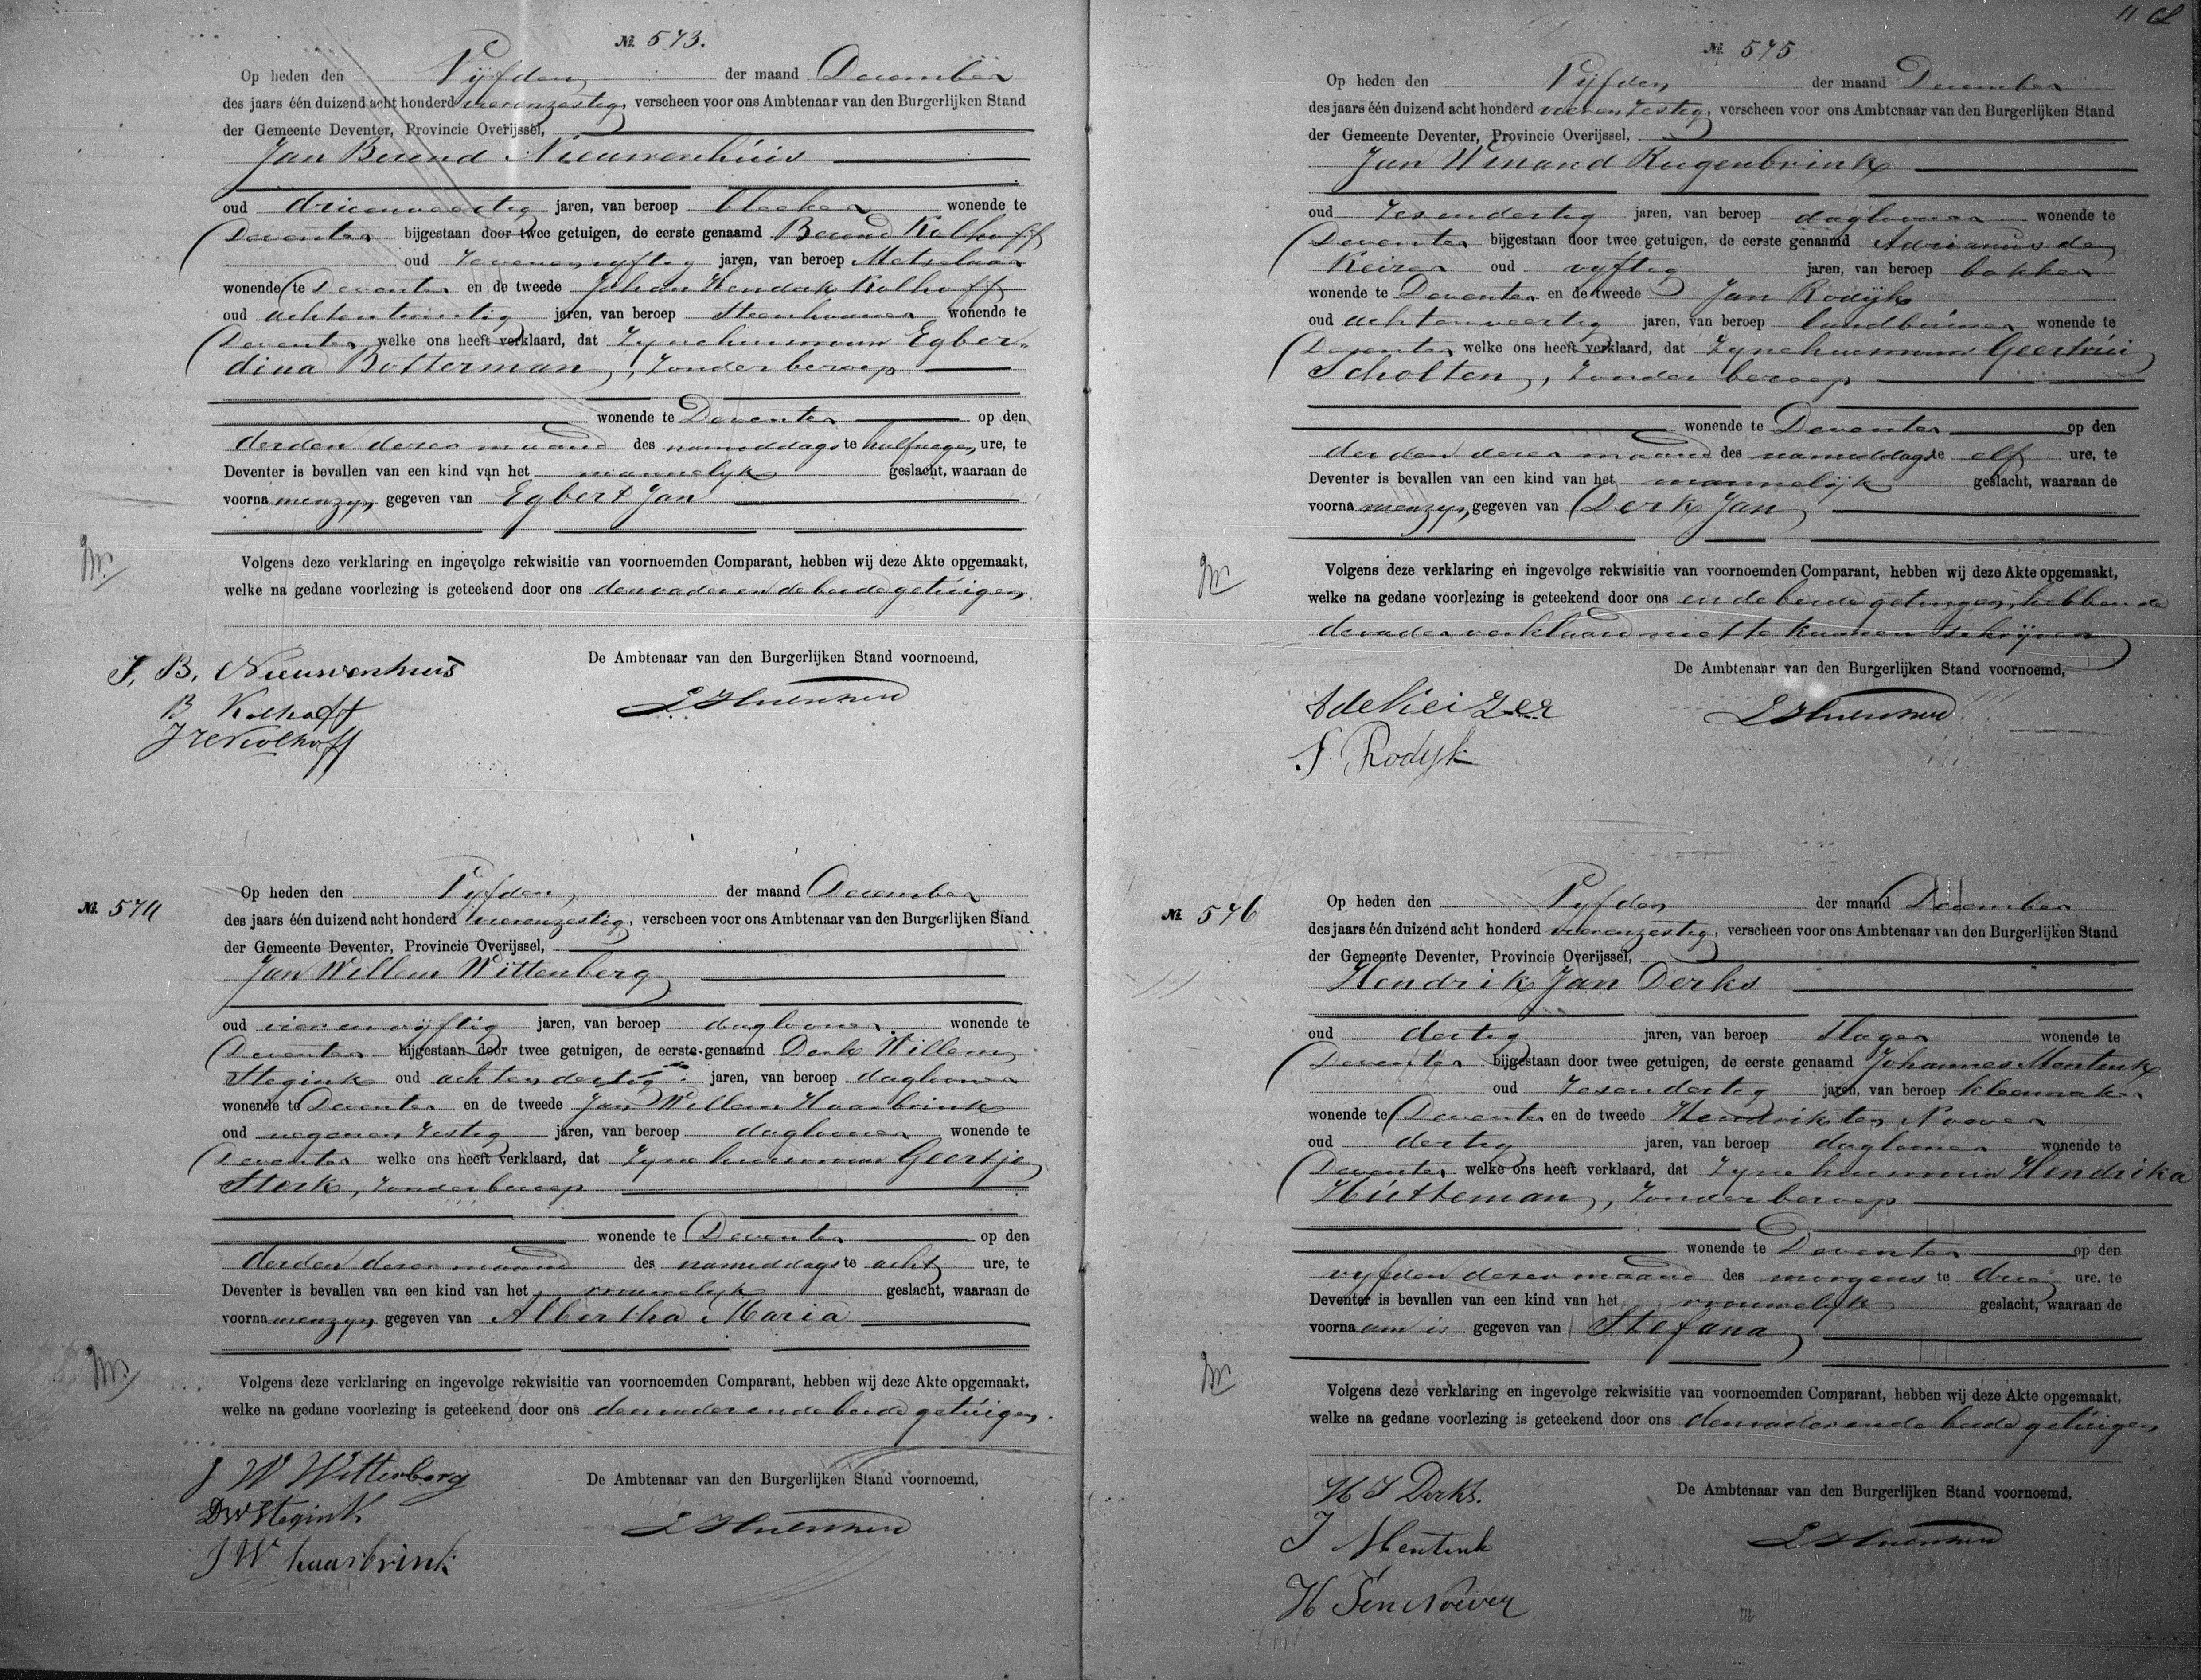 № 573.
Op heden den Vijfden der maand December
des jaars één duizend acht honderd vierenzestig, verscheen voor ons Ambtenaar van den Burgerlijken Stand
der Gemeente Deventer, Provincie Overijssel,
Jan Berend Nieuwenhuis
oud drieenveertig jaren, van beroep bleeker wonende te
Deventer bijgestaan door twee getuigen, de eerste genaamd Berend Kolhoff
oud zevenenvyftig jaren, van beroep Metselaar
wonende te Deventer en de tweede Johan Hendrik Kolhoff
oud achtentwintig jaren, van beroep Steenhouwer wonende te
Deventer welke ons heeft verklaard, dat zyne huisvrouw Egber-
dina Botterman, zonder beroep
wonende te Deventer op den
derden dezer maand des namiddags te half negen ure, te
Deventer is bevallen van een kind van het mannelyk geslacht, waaraan de
voorna men zyn gegeven van Egbert Jan
Volgens deze verklaring en ingevolge rekwisitie van voornoemden Comparant, hebben wij deze Akte opgemaakt,
welke na gedane voorlezing is geteekend door ons den vader en de beide getuigen.
De Ambtenaar van den Burgerlijken Stand voornoemd,
J. B. Nieuwenhuis
B Kolhoff
J H Kolhoff
№ 574
Op heden den Vyfden der maand December
des jaars één duizend acht honderd vierenzestig, verscheen voor ons Ambtenaar van den Burgerlijken Stand
der Gemeente Deventer, Provincie Overijssel,
Jan Willem Wittenberg
oud vier en vyftig jaren, van beroep daglooner wonende te
Deventer bijgestaan door twee getuigen, de eerste genaamd Derk Willem
Stegink oud achtendertig jaren, van beroep daglooner
wonende te Deventer en de tweede Jan Willem Haarbrink
oud negenenzestig jaren, van beroep daglooner wonende te
Deventer welke ons heeft verklaard, dat zyne huisvrouw Geertje
Sterk, zonder beroep
wonende te Deventer op den
derden dezer maand des namiddags te acht ure, te
Deventer is bevallen van een kind van het vrouwelyk geslacht, waaraan de
voorna men zyn gegeven van Albertha Maria
Volgens deze verklaring en ingevolge rekwisitie van voornoemden Comparant, hebben wij deze Akte opgemaakt,
welke na gedane voorlezing is geteekend door ons den vader en de beide getuigen.
De Ambtenaar van den Burgerlijken Stand voornoemd,
J W Wittenberg
DW Stegink
J W haarbrink
№ 575
Op heden den Vijfden der maand December
des jaars één duizend acht honderd vierenzestig, verscheen voor ons Ambtenaar van den Burgerlijken Stand
der Gemeente Deventer, Provincie Overijssel,
Jan Winand Rugenbrink
oud zesendertig jaren, van beroep daglooner wonende te
Deventer bijgestaan door twee getuigen, de eerste genaamd Adrianus de
Keizer oud vyftig jaren, van beroep bakker
wonende te Deventer en de tweede Jan Rodijk
oud achtenveertig jaren, van beroep landbouwer wonende te
Deventer welke ons heeft verklaard, dat zyne huisvrouw Geertrui
Scholten, zonder beroep
wonende te Deventer op den
derden dezer maand des namiddags te elf ure, te
Deventer is bevallen van een kind van het mannelijk geslacht, waaraan de
voorna men zyn gegeven van Derk Jan
Volgens deze verklaring en ingevolge rekwisitie van voornoemden Comparant, hebben wij deze Akte opgemaakt,
welke na gedane voorlezing is geteekend door ons en de beide getuigen, hebbende
de vader verklaard niet te kunnen schrijven
De Ambtenaar van den Burgerlijken Stand voornoemd,
A de Keizer
J. Rodijk
№ 576
Op heden den Vyfden der maand December
des jaars één duizend acht honderd vierenzestig, verscheen voor ons Ambtenaar van den Burgerlijken Stand
der Gemeente Deventer, Provincie Overijssel,
Hendrik Jan Derks
oud dertig jaren, van beroep Slager wonende te
Deventer bijgestaan door twee getuigen, de eerste genaamd Johannes Mentink
oud zesendertig jaren, van beroep kleermaker
wonende te Deventer en de tweede Hendrik ten Noever
oud dertig jaren, van beroep daglooner wonende te
Deventer welke ons heeft verklaard, dat zyne huisvrouw Hendrika
Hutteman, zonder beroep
wonende te Deventer op den
vyfden dezer maand des morgens te drie ure, te
Deventer is bevallen van een kind van het vrouwelyk geslacht, waaraan de
voorna am is gegeven van Stefana
Volgens deze verklaring en ingevolge rekwisitie van voornoemden Comparant, hebben wij deze Akte opgemaakt,
welke na gedane voorlezing is geteekend door ons den vader en de beide getuigen
De Ambtenaar van den Burgerlijken Stand voornoemd,
H J Derks.
J Mentink
H Ten Noever